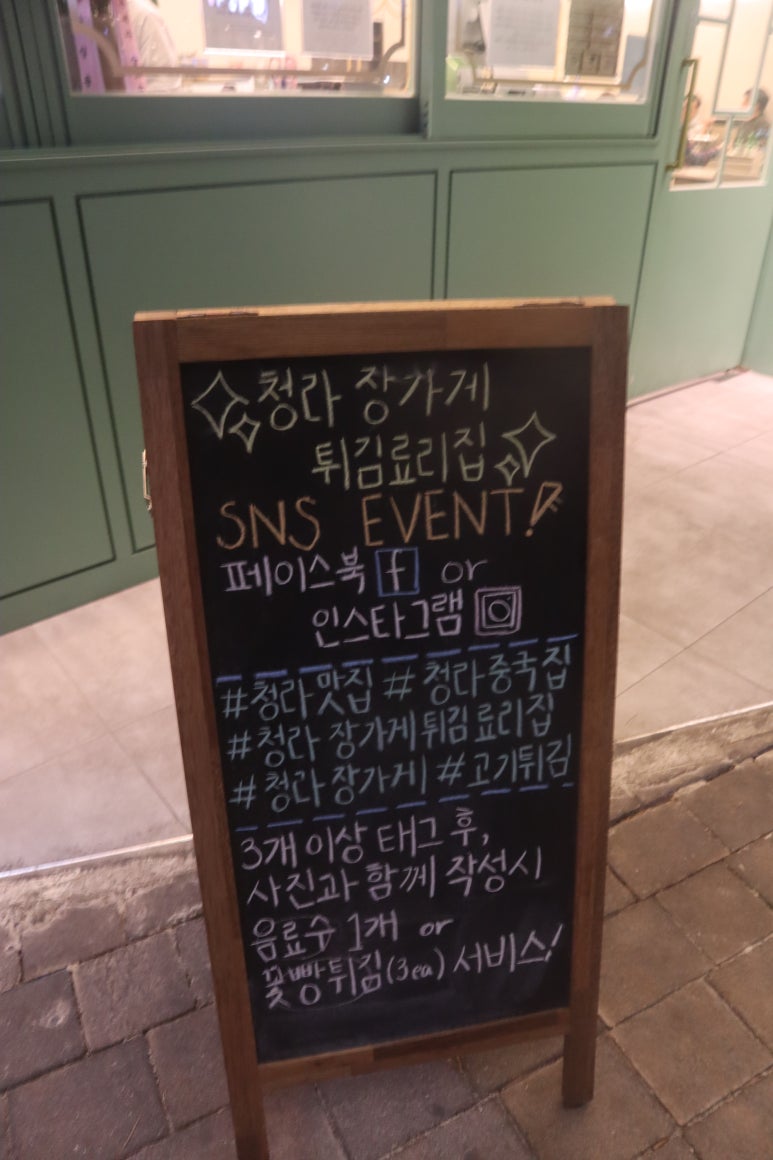 청라 장가게
튀김료리집
SNS EVENT!
페이스북 f or
인스타그램
#청라맛집 #청라중국집
#청라 장가게튀김료리집
#청라장가게 #고기튀김
3개 이상 태그 후,
사진과 함께 작성시
음료수 1개 or
꽃빵튀김(3ea) 서비스!